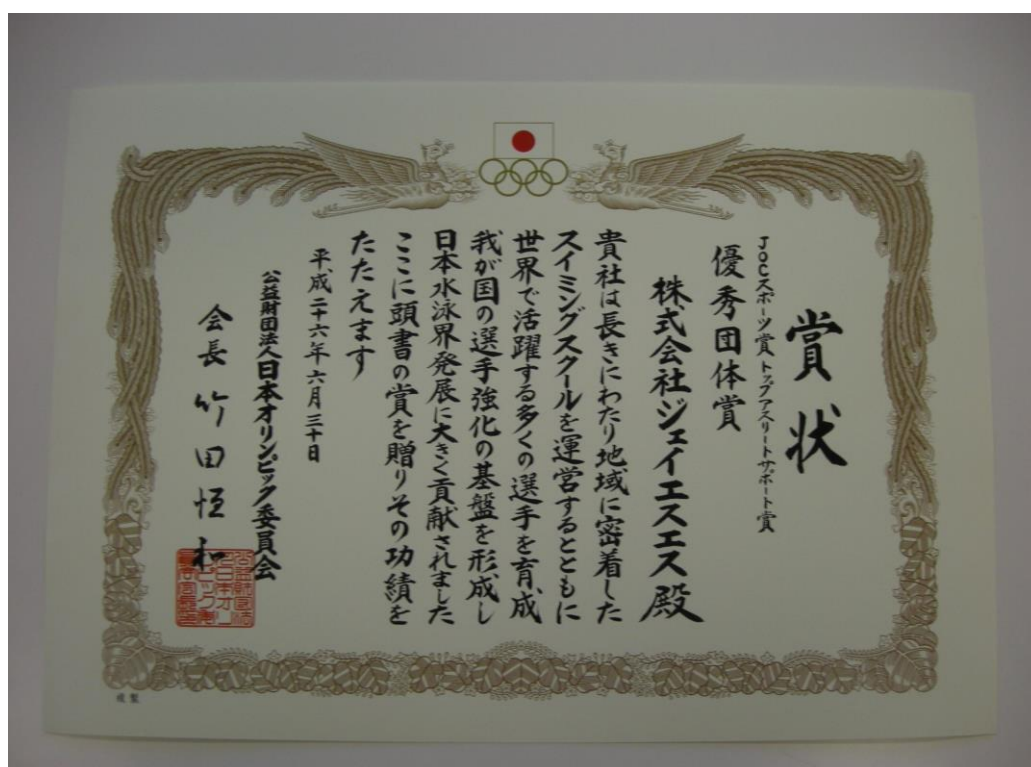 賞状
JOCスポーツ賞トップアスリートサポート賞
優秀団体賞
株式会社ジェイエスエス殿
貴社は長きにわたり地域に密着した
スイミングスクールを運営するとともに
世界で活躍する多くの選手を育成
我が国の選手強化の基盤を形成し
日本水泳界発展に大きく貢献されました
ここに頭書の賞を贈りその功績を
たたえます
平成二十六年六月三十日
公益財団法人日本オリンピック委員会
会長 竹田恆和